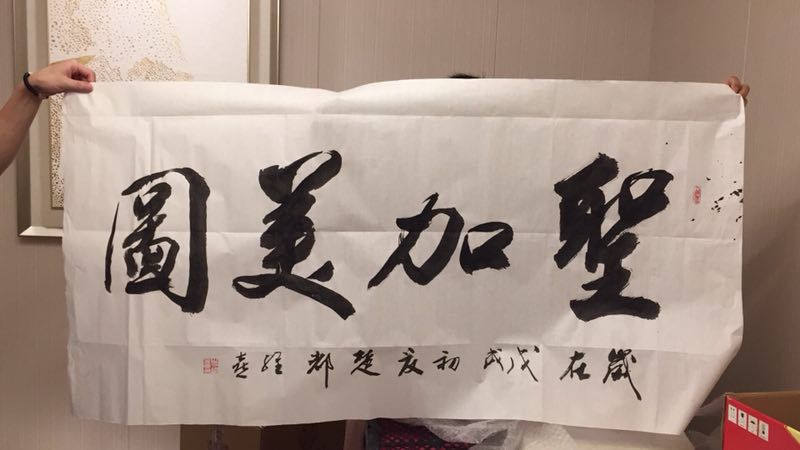 聖加美圖
歲在戊戌初夏楚都經喜